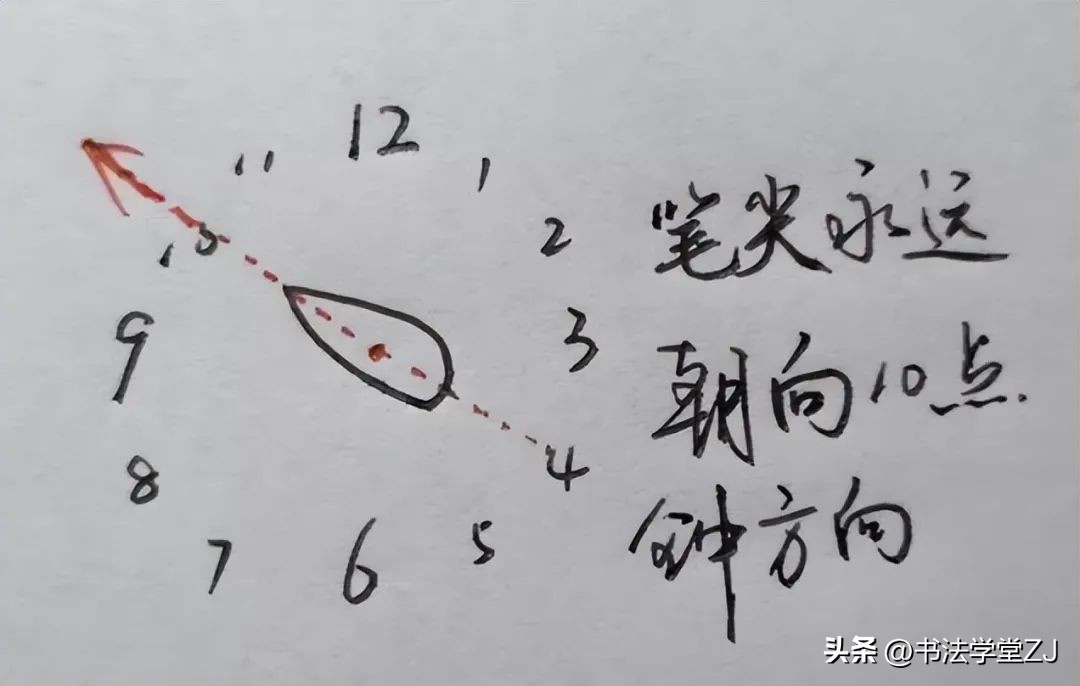 12
11
1
10
2
笔尖永远
9
3
朝向10点
8
4
钟方向
7
6
5
头条 @书法学堂ZJ